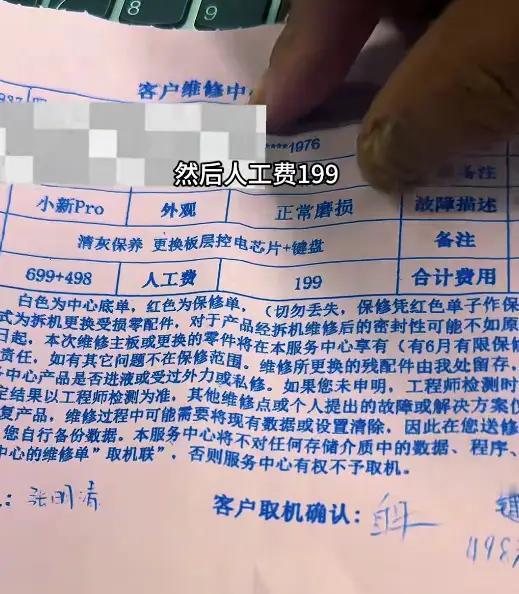 7 8 9
客户维修中
****1976
备注
然后人工费199
小新Pro 外观 正常磨损 故障描述
清灰保养 更换板层控电芯片+键盘 备注
699+498 人工费 199 合计费用
白色为中心底单，红色为保修单，（切勿丢失，保修凭红色单子作保
式为拆机更换受损零配件，对于产品经拆机维修后的密封性可能不如原
日起，本次维修主板或更换的零件将在本服务中心享有（有6月有限保修
责任，如有其它问题不在保修范围。维修所更换的残配件由我处留存，
务中心产品是否进液或受过外力或私修。如果您未申明，工程师检测时
定结果以工程师检测为准，其他维修点或个人提出的故障或解决方案仅
复产品，维修过程中可能需要将现有数据或设置清除，因此在您送修
您自行备份数据。本服务中心将不对任何存储介质中的数据、程序、
中心的维修单"取机联"，否则服务中心有权不予取机。
：张明清 客户取机确认：